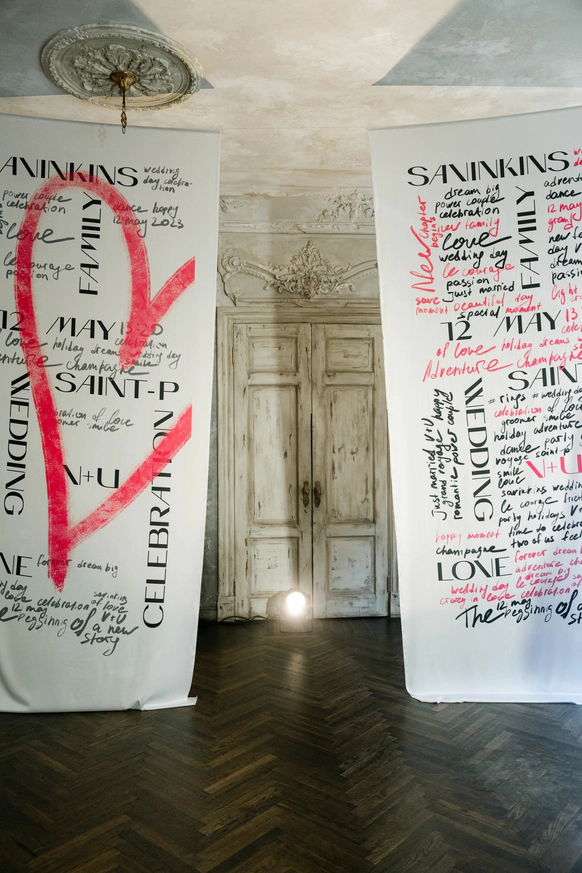 SAVINKINS
wedding
day celebra-
tion
power couple
celebration
dance happy
12 may 2023
love
FAMILY
le courage
passion
12 MAY 13:20
love holiday dreams
wedding day
Adventure champagne
SAINT-P
WEDDING
celebration of love
groomer smile
V+U
CELEBRATION
forever dream big
love celebration of love
savinkins
12 may
V+U
peggining of a new
story
SAVINKINS
dream big
power couple
celebration
New Chapter
begins
river family
love
FAMILY
wedding day
le courage
passion
just married
save
moment
beautiful day
special moment
12 MAY 13
of love holiday dreams
Adventure champagne
SAINT
WEDDING
just married V+U happy
grand voyage
romantic power couple
# rings # wedding day
celebration of love
groomer smile
holiday adventure
dance party
voyage saint-p
smile
love
V+U
savinkins wedding
le courage
party holidays V+U
time to celebrate
two of us
happy moment
champagne
LOVE
forever dream
adventure
dream big
wedding day le courage
crazy in love celebration
12 may
The peggining of
story